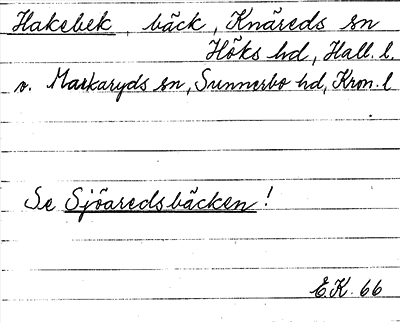 Hakebek, bäck, Knäreds sn
Höks hd, Hall. l.
o. Markaryds sn, Sunnerbo hd, Kron. l
Se Sjöaredsbäcken!
E.K. 66